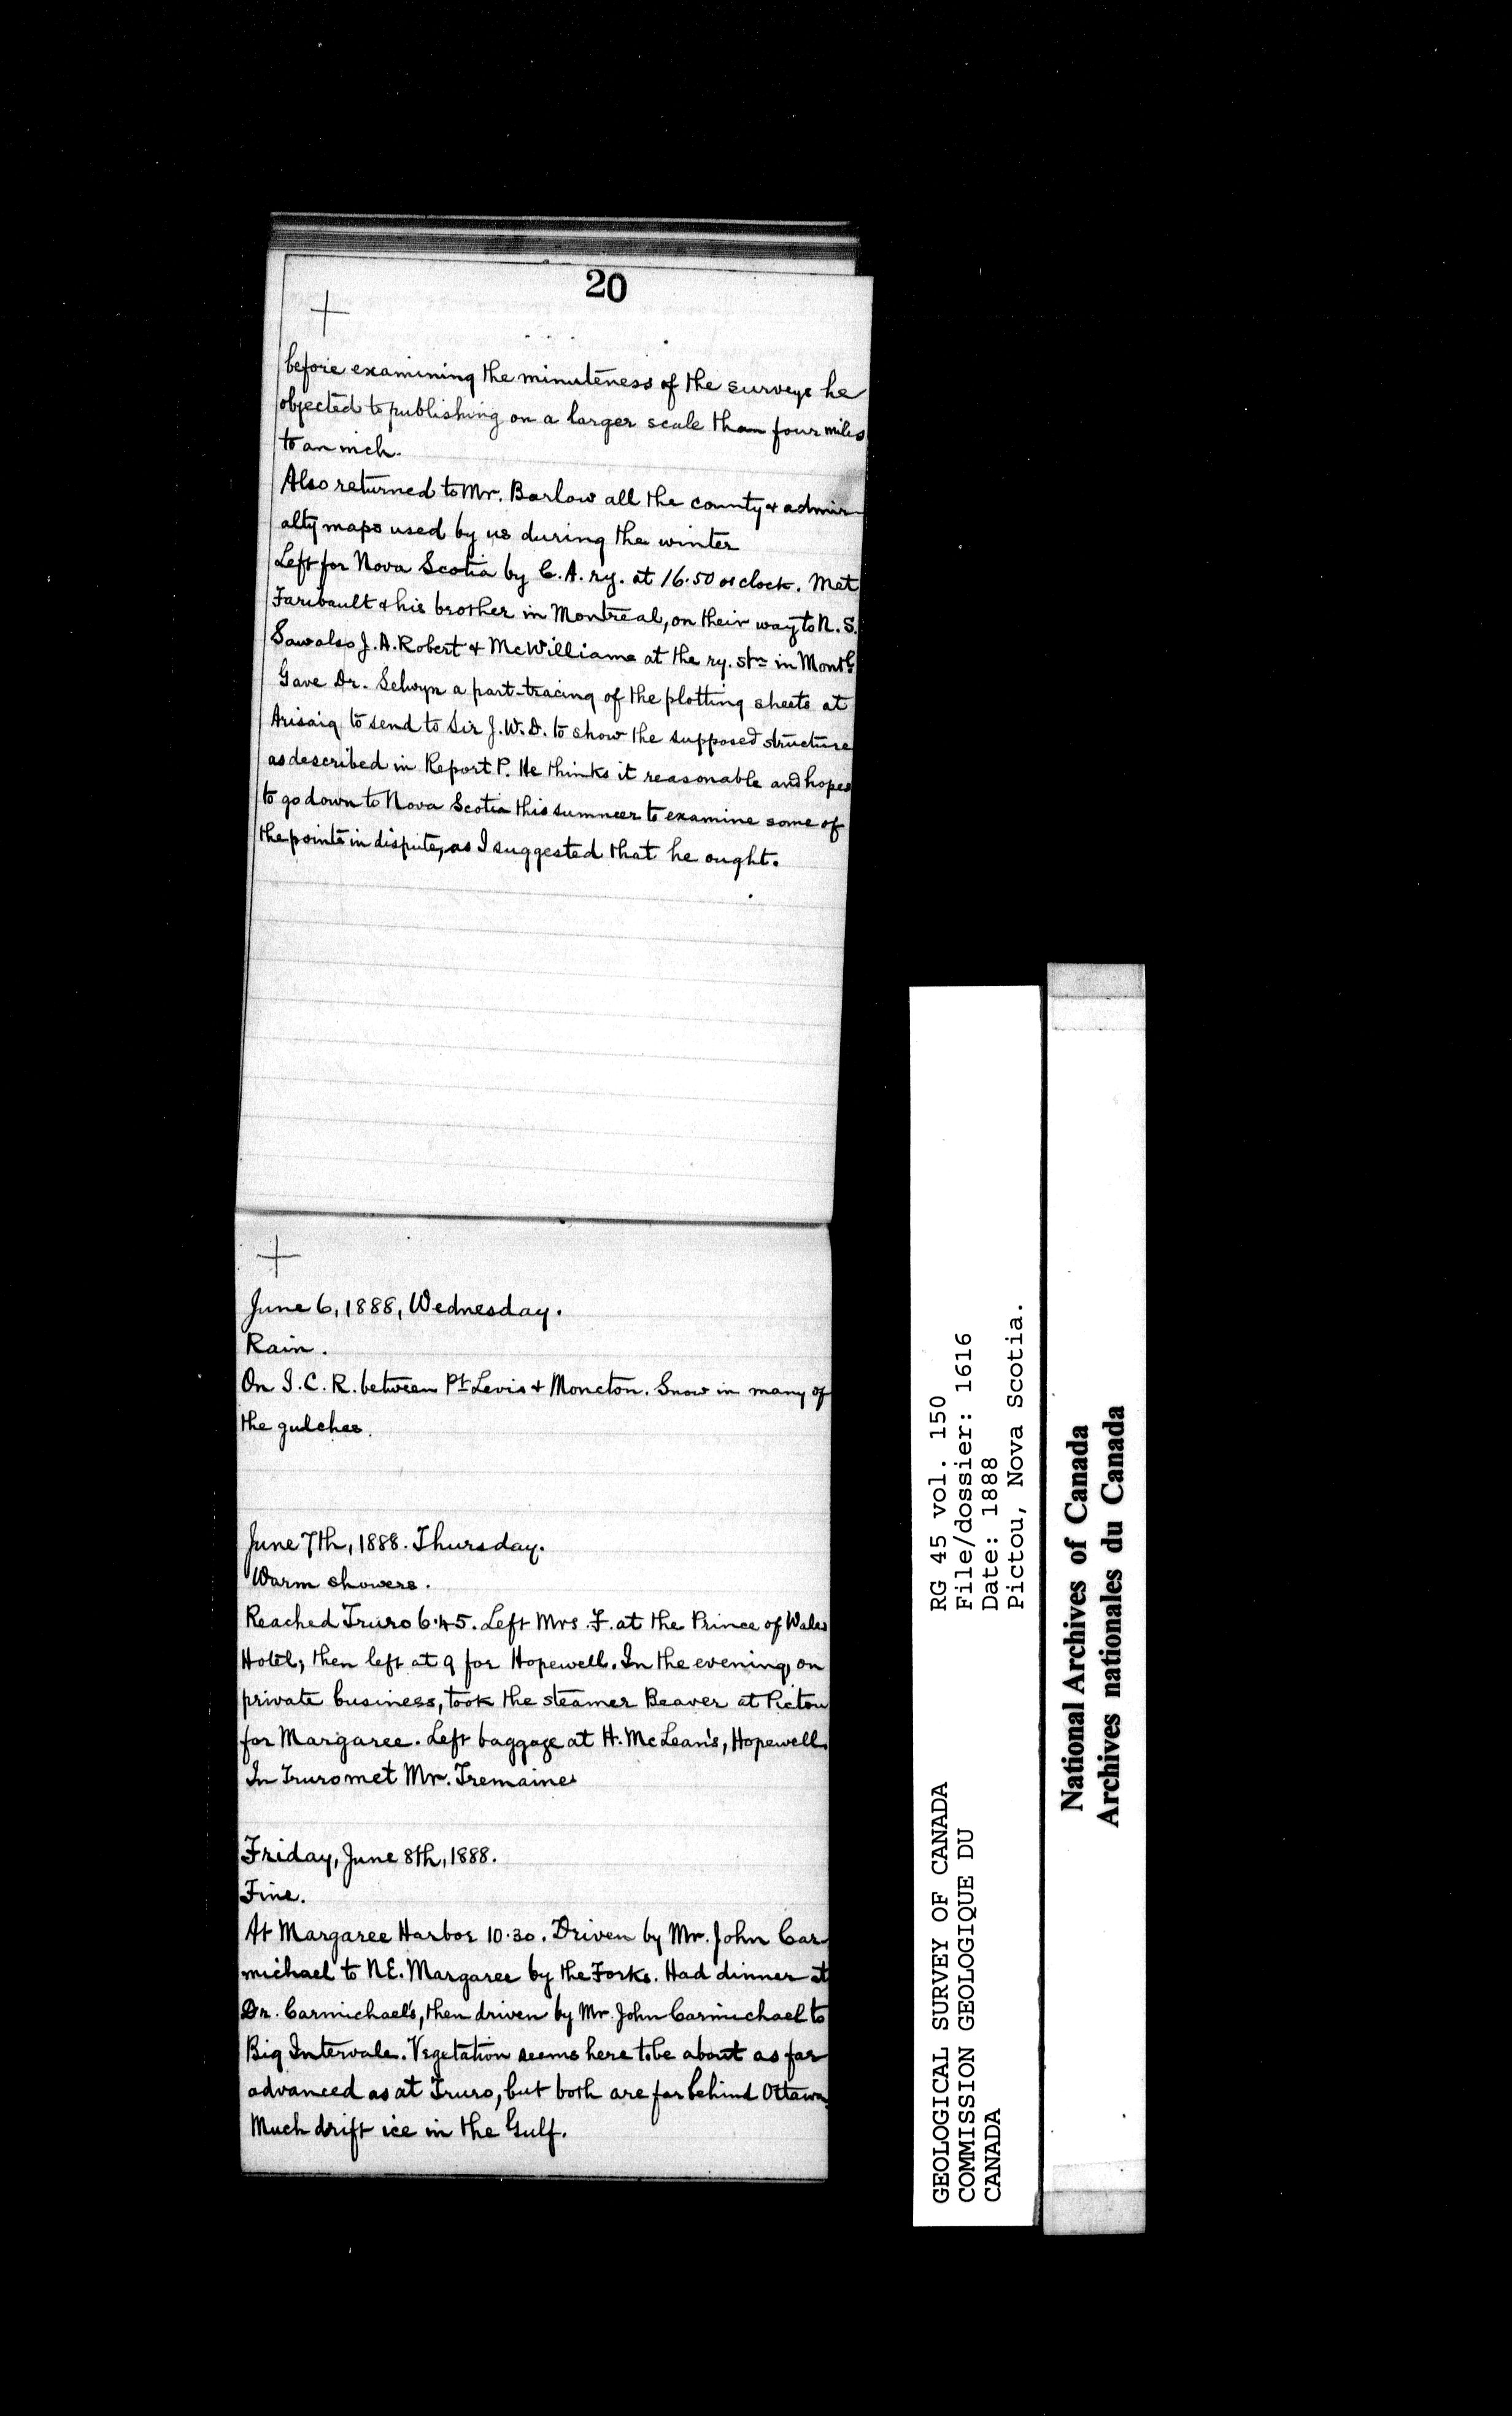 20
before examining the minuteness of the surveys he
objected to publishing on a larger scale than four miles
to an inch.
Also returned to Mr. Barlow all the county & admir-
alty maps used by us during the winter
Left for Nova Scotia by C. A. ry. at 16.50 o'clock. Met
Faribault & his brother in Montreal, on their way to N. S.
Saw also J. A. Robert & McWilliams at the ry. stn in Montl.
Gave Dr. Selwyn a part-tracing of the plotting sheets at
Arisaig to send to Sir J. W. D. to show the supposed structure
as described in Report P. He thinks it reasonable and hopes
to go down to Nova Scotia this summer to examine some of
the points in dispute, as I suggested that he ought.
June 6, 1888, Wednesday.
Rain.
On I. C. R. between Pt Levis & Moncton. Snow in many of
the gulches.
June 7th, 1888. Thursday.
Warm showers.
Reached Truro 6.45. Left Mrs. F. at the Prince of Wales
Hotel; then left at 9 for Hopewell. In the evening, on
private business, took the steamer Beaver at Pictou
for Margaree. Left baggage at H. McLean's, Hopewell.
In Truro met Mr. Tremaine
Friday, June 8th, 1888.
Fine.
At Margaree Harbor 10.30. Driven by Mr. John Car-
michael to N.E. Margaree by the Forks. Had dinner at
Dr. Carmichael's, then driven by Mr. John Carmichael to
Big Intervale. Vegetation seems here to be about as far
advanced as at Truro, but both are far behind Ottawa.
Much drift ice in the Gulf.
GEOLOGICAL SURVEY OF CANADA
COMMISSION GEOLOGIQUE DU
CANADA
RG 45 vol. 150
File/dossier: 1616
Date: 1888
Pictou, Nova Scotia.
National Archives of Canada
Archives nationales du Canada